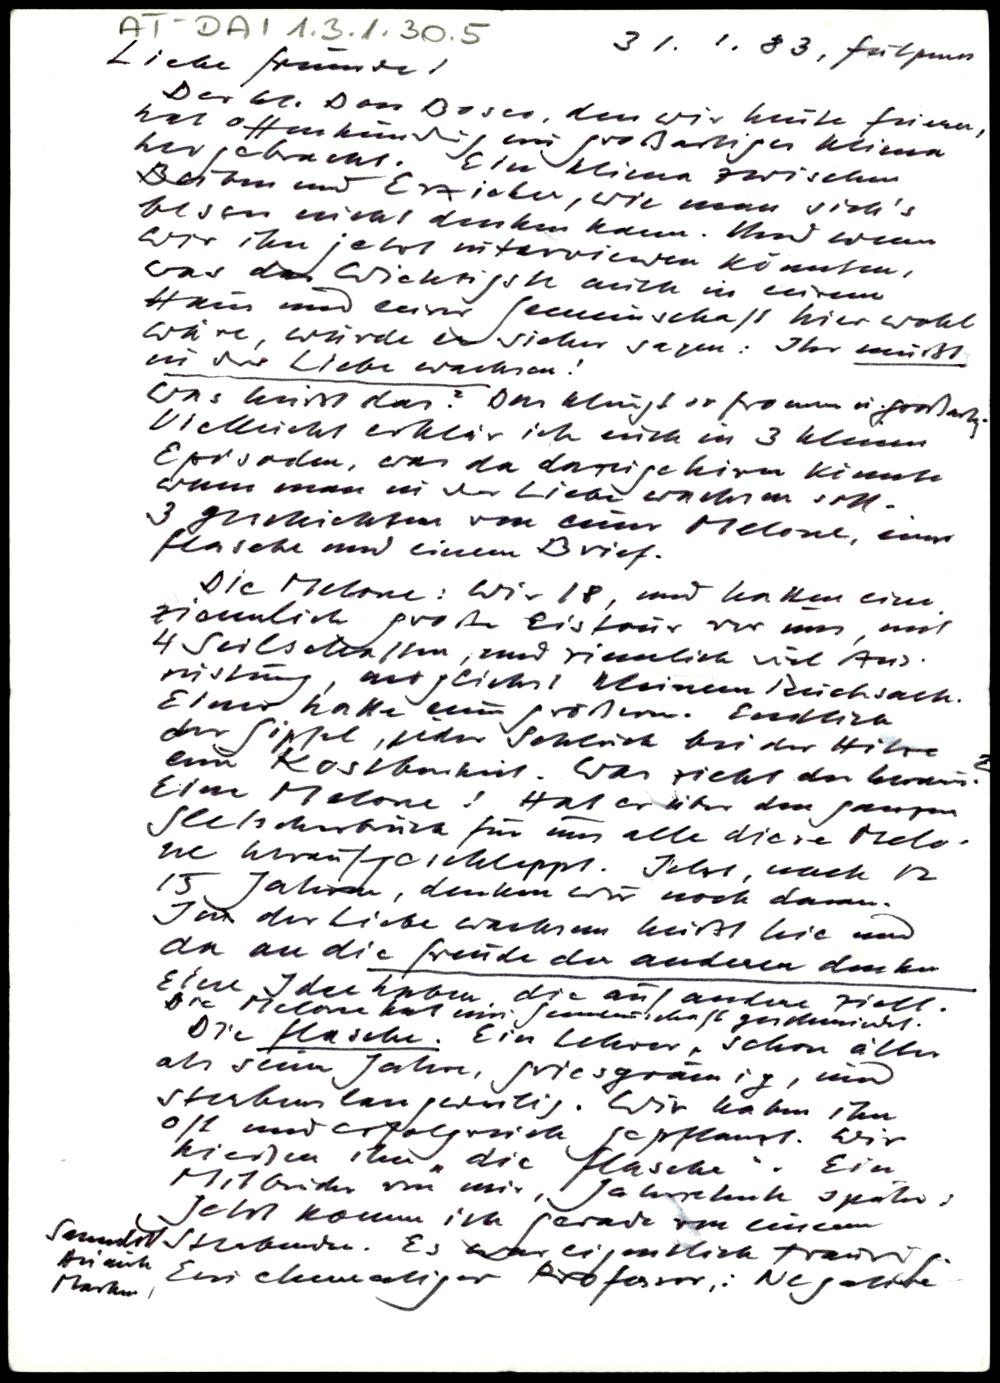 AT-DAI 1.3.1.30.5
31. 1. 83, Fulpmes
Liebe Freunde!
Der hl. Don Bosco, den wir heute feiern,
hat offenkundig ein großartiges Klima
hergebracht. Ein Klima zwischen
Buben und Erzieher, wie man sich's
besser nicht denken kann. Und wenn
wir ihn jetzt interviewen könnten,
was das Wichtigste auch in eurem
Haus und eurer Gemeinschaft hier wohl
wäre, würde er sicher sagen: Ihr müßt
in der Liebe wachsen!
Was heißt das? Das klingt so fromm u. großartig.
Vielleicht erklär ich euch in 3 kleinen
Episoden, was da dazugehören könnte
wenn man in der Liebe wachsen soll.
3 Geschichten von einer Melone, einer
Flasche und einem Brief.
Die Melone: Wir 18, und hatten eine
ziemlich große Eistour vor uns, mit
4 Seilschaften, und ziemlich viel Aus-
rüstung, möglichst kleinem Rucksack.
Einer hatte einen größern. Endlich
der Gipfel, jeder Schluck bei der Hitze
eine Kostbarkeit. Was zieht der heraus?
Eine Melone! Hat er über den ganzen
Gletscherbruch für uns alle diese Melo-
ne heraufgeschleppt. Jetzt, nach 12
15 Jahren, denken wir noch daran.
In der Liebe wachsen heißt hie und
da an die Freude der anderen denken
Eine Idee haben, die auf andere zielt.
Die Melone hat uns. Gemeinschaft geschmiedet.
Die Flasche. Ein Lehrer, schon älter
als seine Jahre, griesgrämig, und
sterbenslangweilig. Wir haben ihn
oft und erfolgreich gepflanzt. Wir
hießen ihn „die Flasche". Ein
Mitbruder von mir, Jahrzehnte später:
Jetzt komm ich gerade von einem
Sterbenden. Es war eigentlich traurig.
Ein ehemaliger Professor,: Negative